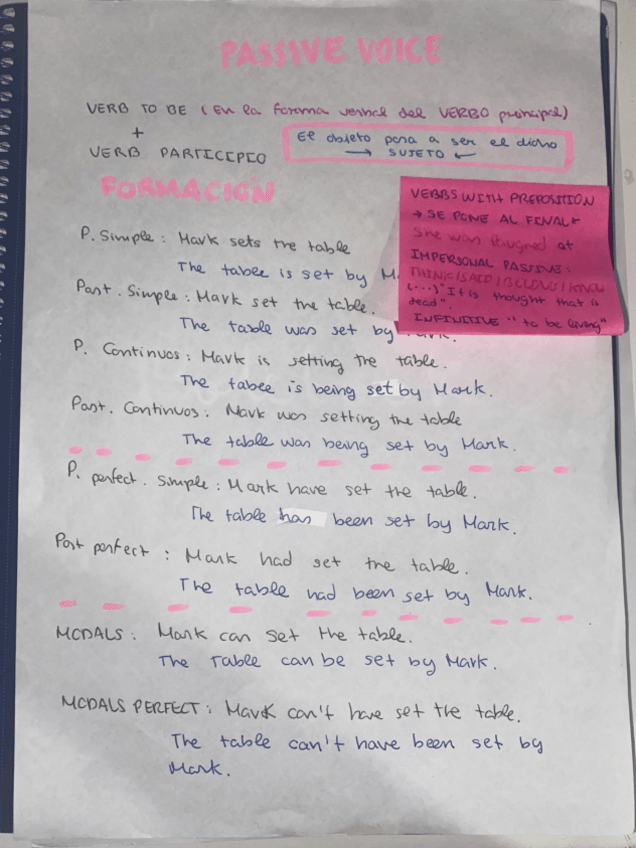 PASSIVE VOICE
VERB TO BE (En la forma verbal del VERBO principal)
+
VERB PARTICIPIO
El objeto pasa a ser el dicho
→ SUJETO ←
FORMACIÓN
P. Simple: Mark sets the table
The table is set by M
Past. Simple: Mark set the table.
The table was set by
P. Continuos: Mark is setting the table.
The table is being set by Mark.
Past. Continuos: Mark was setting the table
The table was being set by Mark.
P. perfect. Simple: Mark have set the table.
The table has been set by Mark.
Past perfect: Mark had set the table.
The table had been set by Mark.
MODALS: Mark can set the table.
The table can be set by Mark.
MODALS PERFECT: Mark can't have set the table.
The table can't have been set by
Mark.
VERBS WITH PREPOSITION
→ SE PONE AL FINAL
She was laughed at
IMPERSONAL PASSIVE:
THINK/SAID/BELIEVE/KNOW
(...) "It is thought that is
dead".
INFINITIVE "to be living"